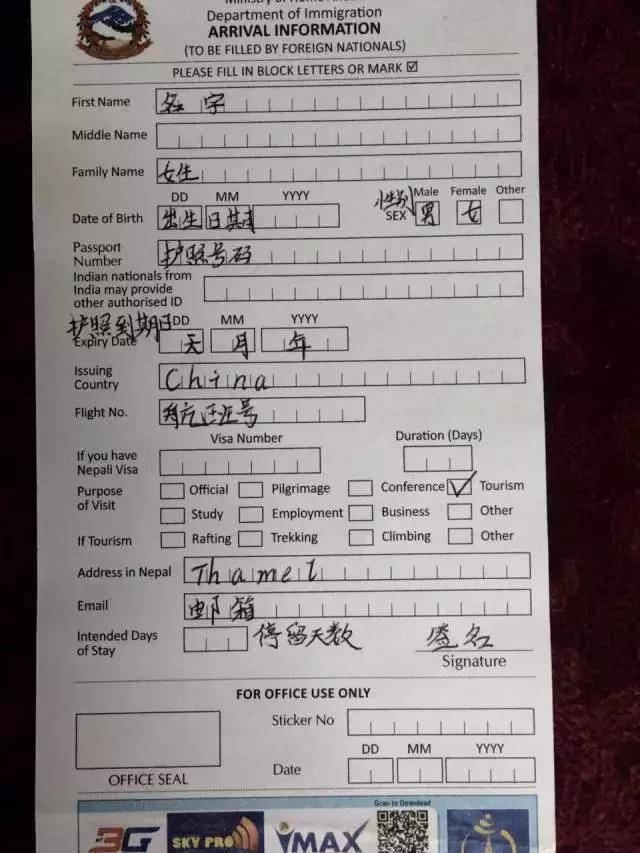 Department of Immigration
ARRIVAL INFORMATION
(TO BE FILLED BY FOREIGN NATIONALS)
PLEASE FILL IN BLOCK LETTERS OR MARK ☑
First Name 名字
Middle Name
Family Name 女生
DD MM YYYY 性别 SEX Male Female Other
Date of Birth 出生日期 男 女
Passport Number 护照号码
Indian nationals from India may provide other authorised ID
护照到期日 DD MM YYYY
Expiry Date 天 月 年
Issuing Country China
Flight No. 航班号
Visa Number Duration (Days)
If you have Nepali Visa
Purpose of Visit Official Pilgrimage Conference ✓ Tourism
Study Employment Business Other
If Tourism Rafting Trekking Climbing Other
Address in Nepal Thamel
Email 邮箱
Intended Days of Stay 停留天数 签名
Signature
FOR OFFICE USE ONLY
Sticker No
DD MM YYYY
OFFICE SEAL Date
Scan to Download
3G SKY PRO YMAX